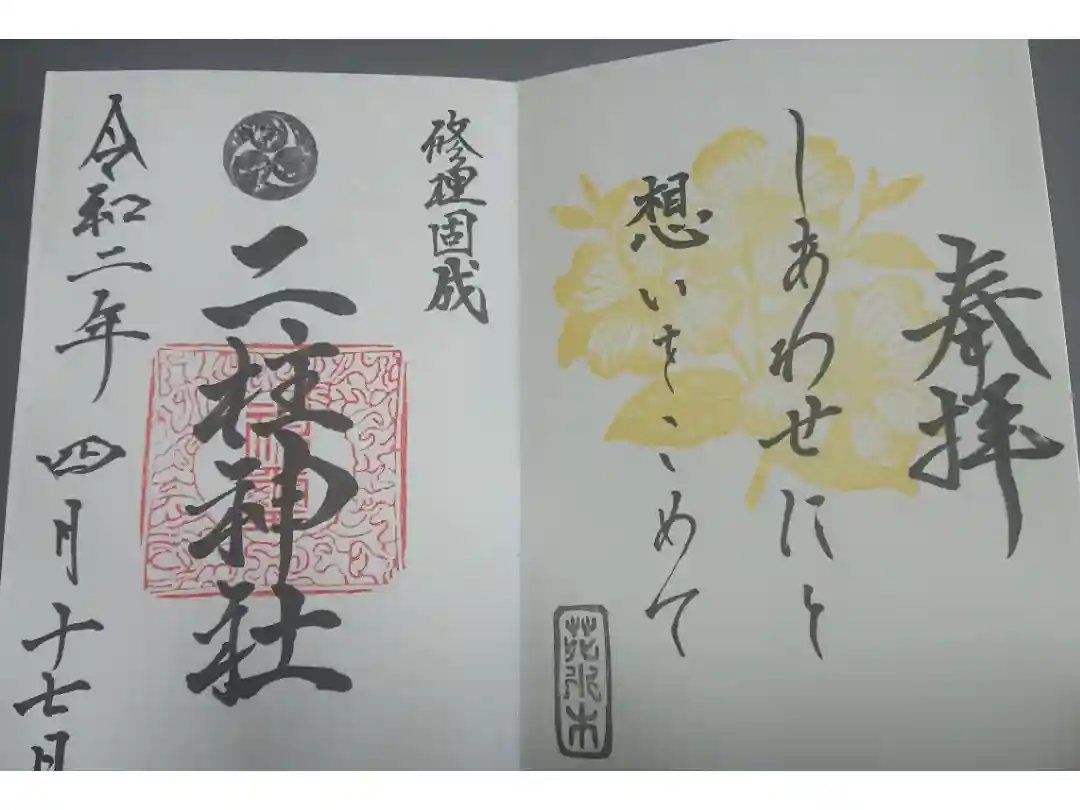 奉拝
しあわせにと
想いをこめて
花水木
修理固成
二柱神社
令和二年 四月十七日